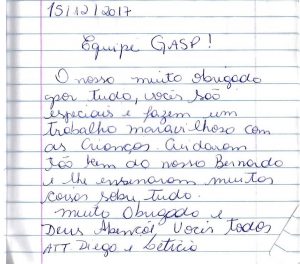 15/12/2017
Equipe GASP!
O nosso muito obrigado
por tudo, vocês são
especiais e fazem um
trabalho maravilhoso com
as crianças. Cuidaram
tão bem do nosso Bernardo
e lhe ensinaram muitas
coisas sobre tudo.
Muito Obrigado e
Deus Abençoe Vocês todos
ATT Diego e Letícia